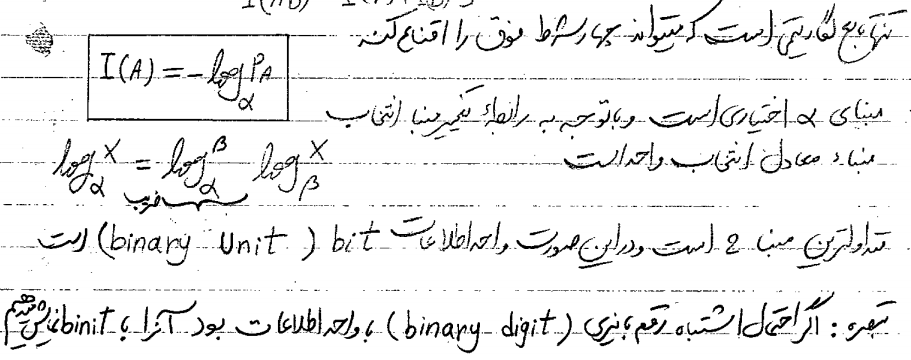 تنها تابع لگاریتمی است که میتواند چهار شرط فوق را اقناع کند
I(A) = -log_α P_A
مبنای α اختیاری است و باتوجه به رابطه تغییر مبنا انتخاب
log_α^X = log_α^β log_β^X
مبنا، معادل انتخاب واحد است
ضریب
متداولترین مبنا 2 است و در این صورت واحد اطلاعات bit (binary Unit) است
تبصره : اگر احتمال اشتباه رقم باینری (binary digit) با واحد اطلاعات بود آنرا با binit نمایش میدهیم